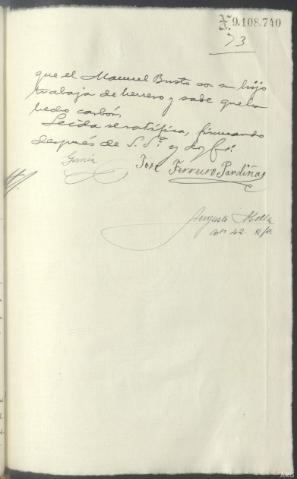 Nº 9.108.740
73
que el Manuel Busto con su hijo
trabaja de herrero y sabe que ha
hecho carbón.
Leida se ratifica, firmando
después de S.Sª y doy fé.
García
José Ferreiro Pardiñas
Augusto